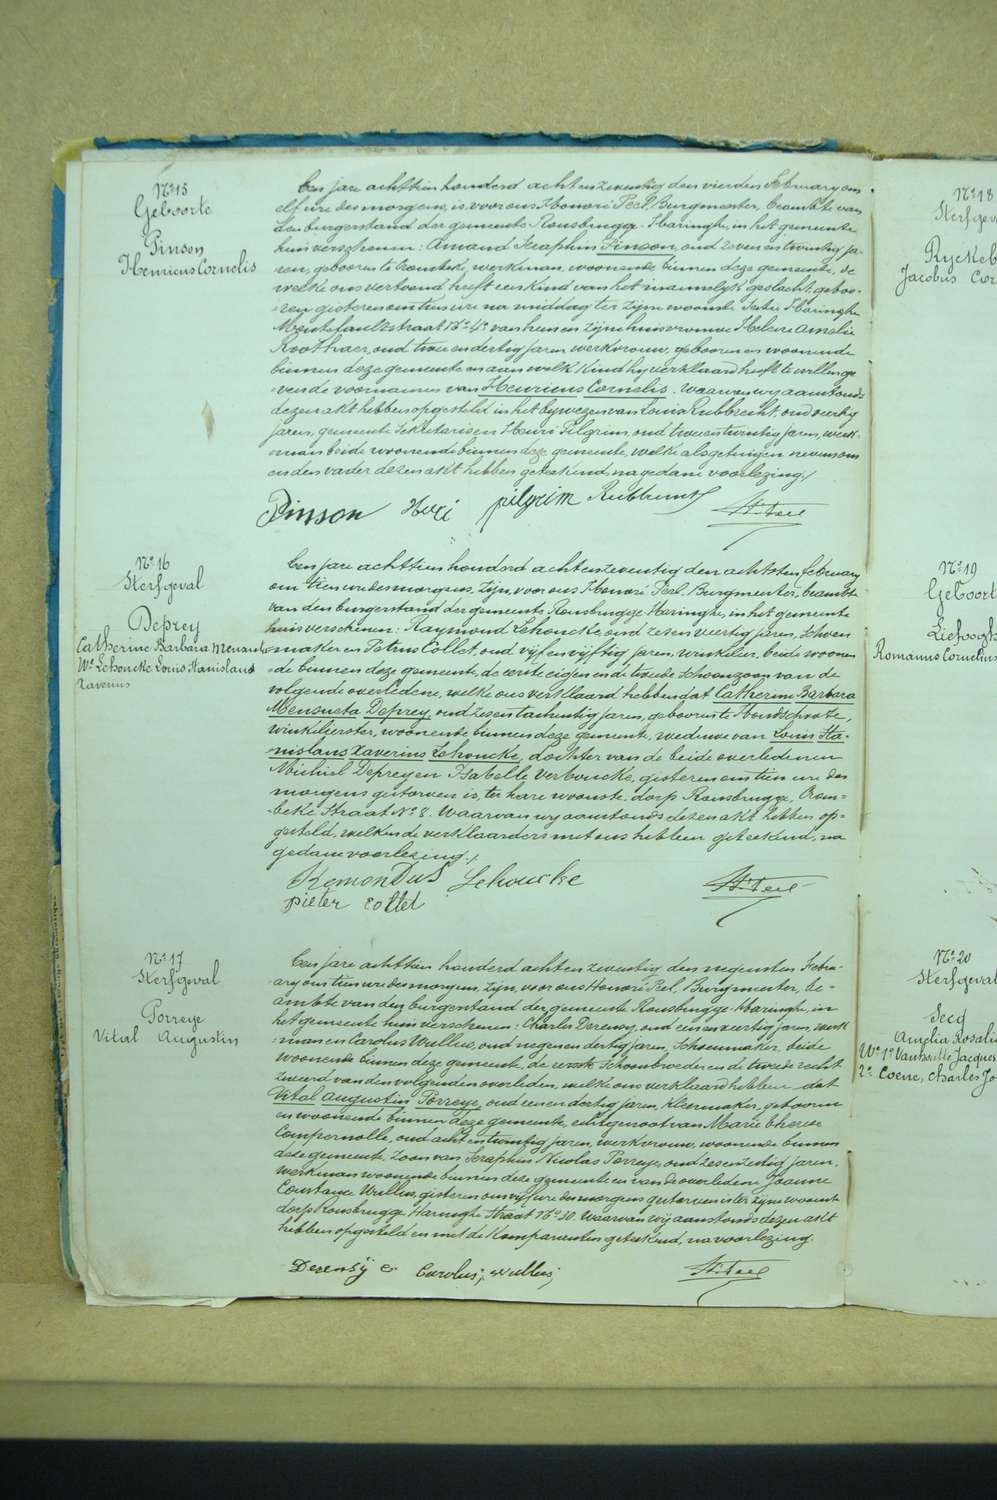 Nº 15
Geboorte
Pinson
Henricus Cornelis
Een jare achttien honderd acht en zeventig den vierden February om
elf ure des morgens, is voor ons Honoré Peel, Burgmeester, beambte van
den burgerstand der gemeente Rousbrugge-Haringhe, in het gemeente
huis verschenen: Amand Seraphin Pinson, oud zeven en twintig ja-
ren, geboren te Crombeke, werkman, woonende binnen deze gemeente, de
welke ons vertoond heeft een kind van het mannelyk geslacht, geboo-
ren gisteren om tien ure na middag ter zijne woonste Sectie Haringhe
straat Nº 4, van hem en zijne huisvrouwe Helene Amelie
Roothaer, oud twee en dertig jaren, werkvrouw, geboren en woonende
binnen deze gemeente en aan welk kind hy verklaard heeft te willen ge-
ven de voornamen van Henricus Cornelis. Waarvan wy aanstonds
dezen akt hebben opgesteld in het bywezen van Louis Rubbrecht, oud veertig
jaren, gemeente Sekretaris en Henri Pilgrim, oud twee en twintig jaren, werk-
man beide woonende binnen deze gemeente, welke als getuigen nevens ons
en den vader dezen akt hebben geteekend, na gedane voorlezing./
Pinson Heri pilgrim Rubbrecht H. Peel
Nº 16
Sterfgeval
Deprey
Catherine Barbara Mensueta
We Lehoucke Louis Stanislaus
Xaverius
Een jare achttien honderd acht en zeventig den achtsten february
om tien ure des morgens, zijn, voor ons Honoré Peel, Burgmeester, beambte
van den burgerstand der gemeente Rousbrugge-Haringhe, in het gemeente
huis verschenen: Raymond Lehoucke, oud zes en veertig jaren, schoen
maker en Petrus Collet, oud vijf en vijftig jaren, winkelier, beide woonen
de binnen deze gemeente, de eerste eigen en de tweede schoonzoon van de
volgende overledene, welke ons verklaard hebben dat Catherine Barbara
Mensueta Deprey, oud zes en tachentig jaren, geboren te Hondschoote,
winkelierster, woonende binnen deze gemeente, weduwe van Louis Sta-
nislaus Xaverius Lehoucke, dochter van de beide overledenen
Michiel Deprey en Isabelle Verboucke, gisteren om tien ure des
morgens gestorven is, ter hare woonste, dorp Rousbrugge, Crom-
beke straat Nº 8. Waarvan wy aanstonds dezen akt hebben op-
gesteld, welken de verklaarders met ons hebben geteekend, na
gedane voorlezing./
RemonDus Lehoucke H. Peel
pieter collet
Nº 17
Sterfgeval
Porreye
Vital Augustin
Een jare achttien honderd acht en zeventig den negensten Febru-
ary om tien ure des morgens, zijn, voor ons Honoré Peel, Burgmeester, be-
ambte van den burgerstand der gemeente Rousbrugge-Haringhe, in
het gemeente huis verschenen: Charles Derensy, oud een en veertig jaren, werk
man en Carolus Wullus, oud negen en dertig jaren, schoenmaker, beide
woonende binnen deze gemeente, de eerste schoonbroeder en de tweede recht
zweerd van den volgenden overleden, welke ons verklaard hebben dat
Vital Augustin Porreye, oud een en dertig jaren, kleermaker, geboren
en woonende binnen deze gemeente, echtgenoot van Marie Therese
Compernolle, oud acht en twintig jaren, werkvrouw, woonende binnen
deze gemeente, zoon van Seraphin Nicolas Porreye, oud zes en zestig jaren,
werkman woonende binnen deze gemeente en van de overledene Joanne
Constance Wullus, gisteren om vijf ure des morgens gestorven is ter zijne woonst
dorp Rousbrugge Haringhe straat Nº 30. Waarvan wij aanstonds dezen akt
hebben opgesteld en met de komparanten geteekend, na voorlezing.
Derensÿ c Carolus, Wullus, H. Peel
Nº 18
Sterfgev
Ryckeb
Jacobus Cor
Nº 19
Geboort
Liefoogh
Romanus Cornelius
Nº 20
Sterfgeval
Secq
Amelia Rosali
We 1º Jacques
2º Coene, Charles Jo